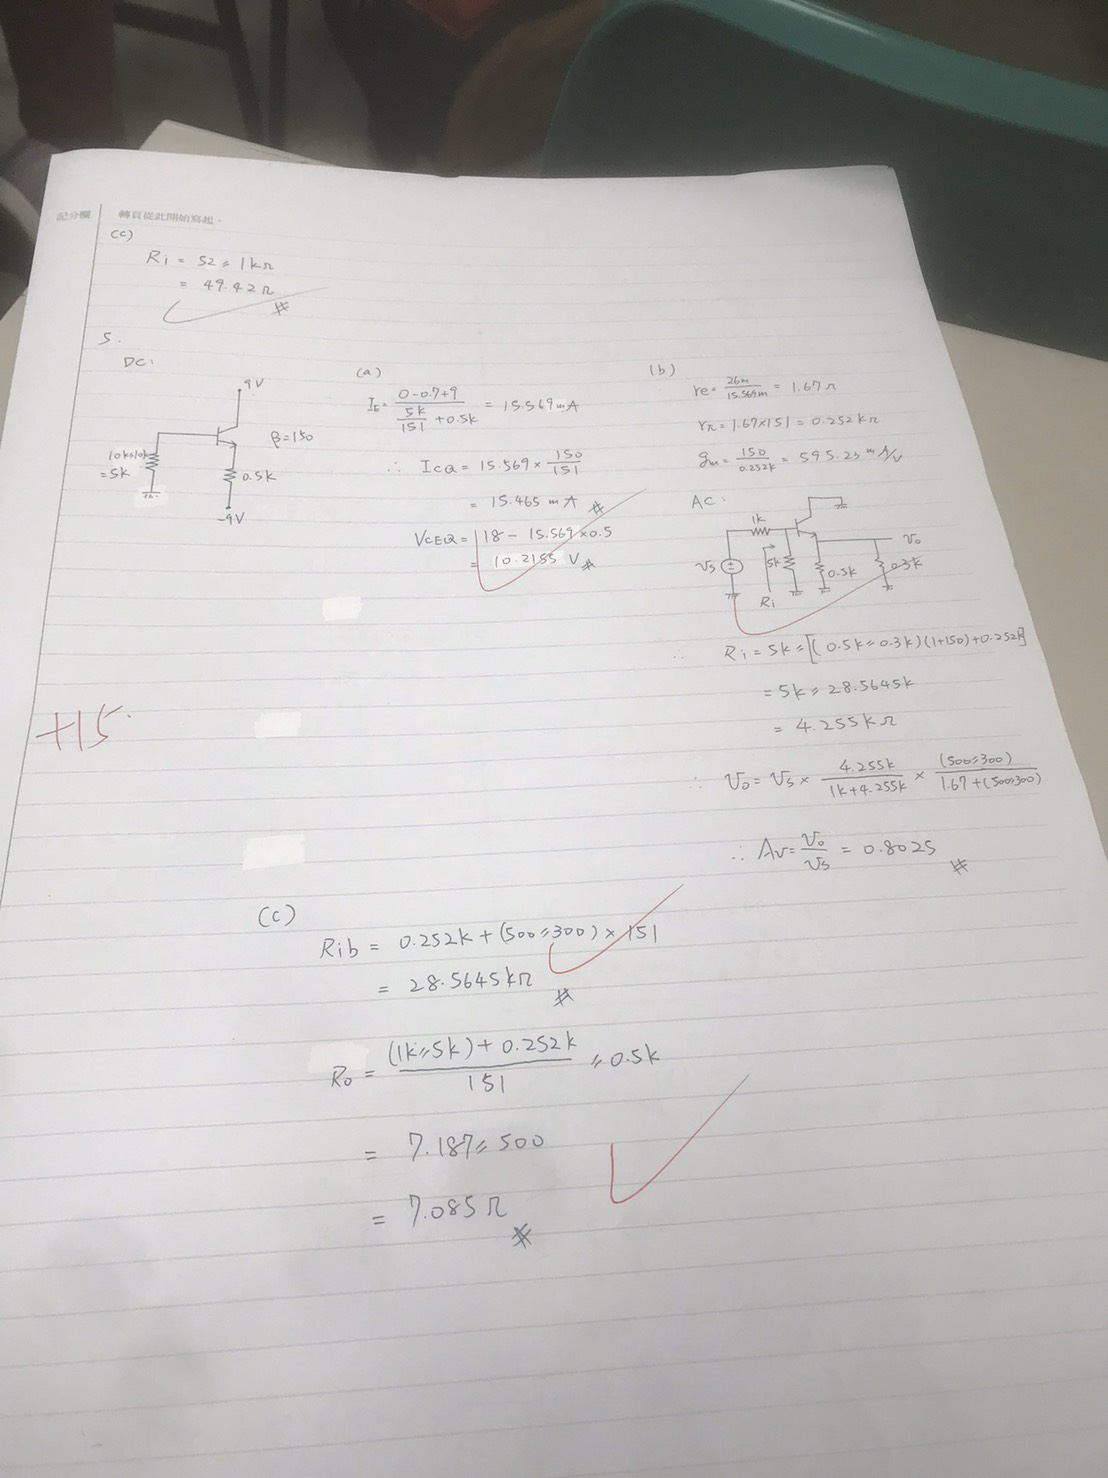 記分欄 轉頁從此開始寫起。
(c)
Ri = 52 // 1kΩ
= 49.42Ω
※
5.
DC:
9V
β=150
10k//10k
=5k
0.5k
-9V
(a)
IE = (0-0.7+9)/(5k/151 + 0.5k) = 15.569mA
∴ ICQ = 15.569 × 150/151
= 15.465 mA ※
VCEQ = 18 - 15.569×0.5
= 10.2155 V ※
(b)
re = 26m/15.569m = 1.67Ω
rπ = 1.67×151 = 0.252kΩ
gm = 150/0.252k = 595.23 m A/V
AC:
1k
Vs
5k
Ri
0.5k
0.3k
Vo
∴ Ri = 5k // [(0.5k // 0.3k)(1+150)+0.252k]
= 5k // 28.5645k
= 4.255kΩ
∴ Vo = Vs × 4.255k/(1k+4.255k) × (500//300)/(1.67+(500//300))
∴ Av = Vo/Vs = 0.8025
※
+15
(c)
Rib = 0.252k + (500 // 300) × 151
= 28.5645kΩ
※
Ro = ((1k // 5k) + 0.252k)/151 // 0.5k
= 7.187 // 500
= 7.085Ω
※